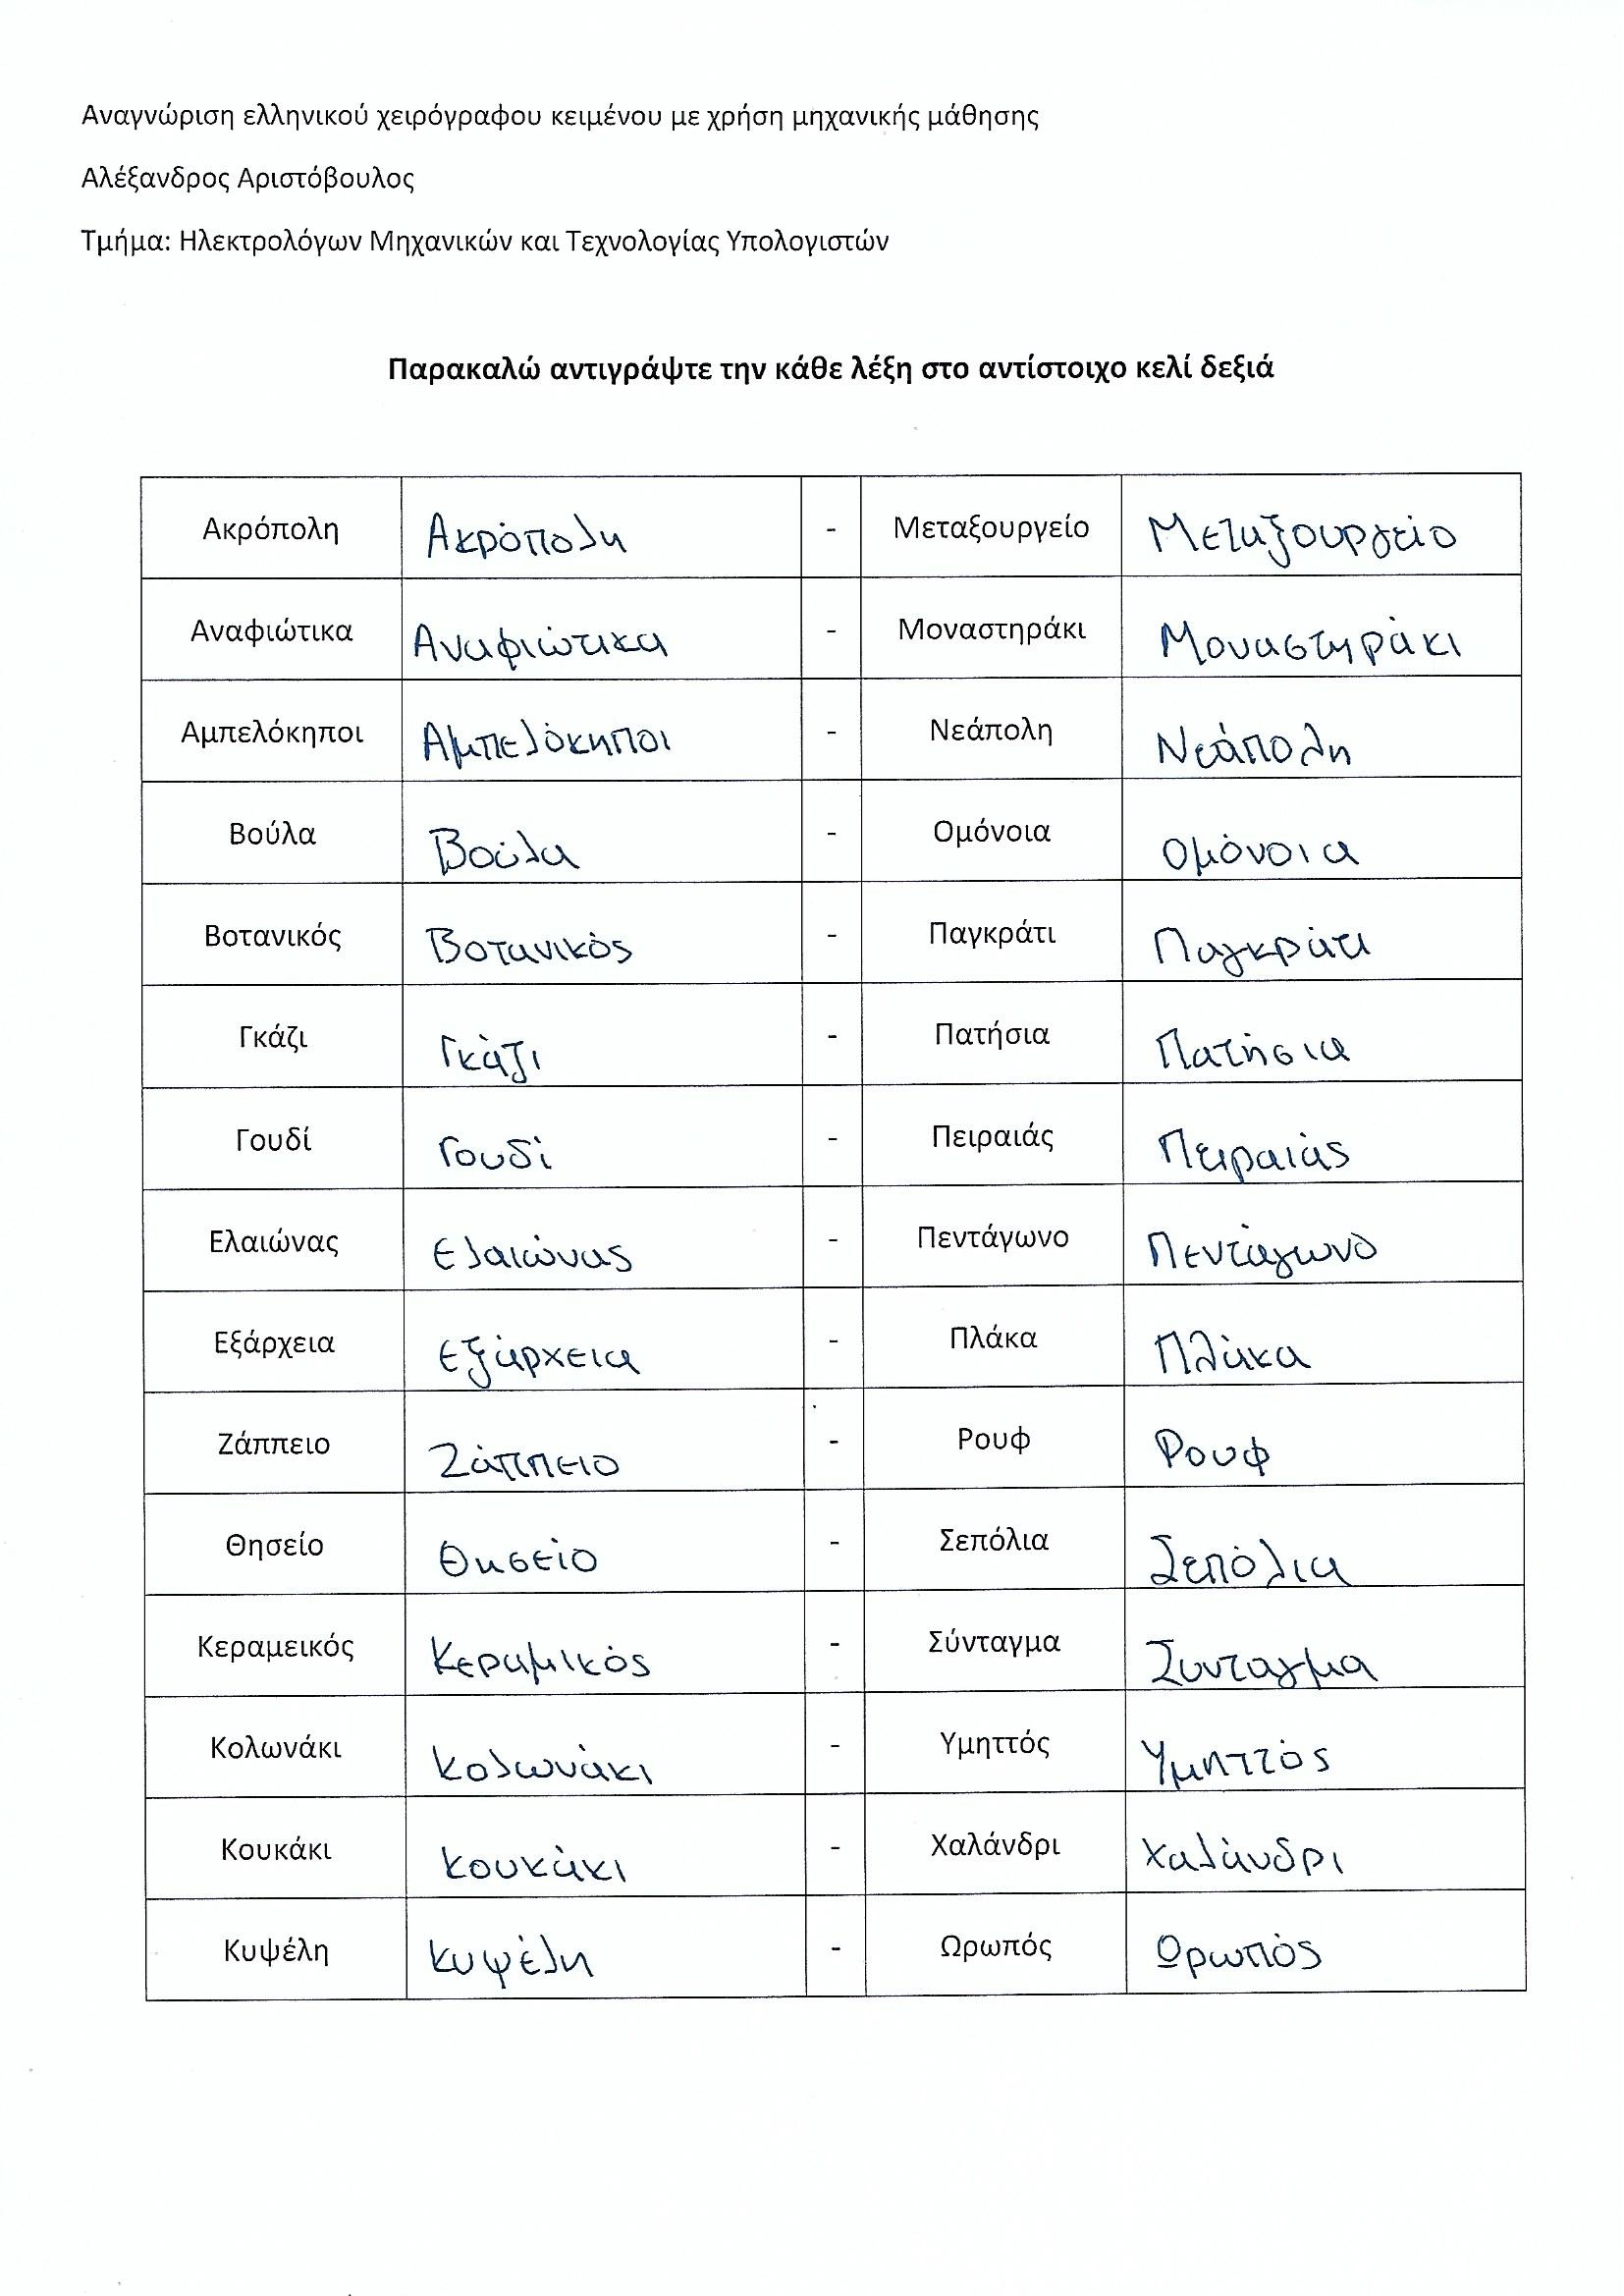 Αναγνώριση ελληνικού χειρόγραφου κειμένου με χρήση μηχανικής μάθησης
Αλέξανδρος Αριστόβουλος
Τμήμα: Ηλεκτρολόγων Μηχανικών και Τεχνολογίας Υπολογιστών
Παρακαλώ αντιγράψτε την κάθε λέξη στο αντίστοιχο κελί δεξιά
Ακρόπολη Ακρόπολη - Μεταξουργείο Μεταξουργείο
Αναφιώτικα Αναφιώτικα - Μοναστηράκι Μοναστηράκι
Αμπελόκηποι Αμπελόκηποι - Νεάπολη Νεάπολη
Βούλα Βούλα - Ομόνοια Ομόνοια
Βοτανικός Βοτανικός - Παγκράτι Παγκράτι
Γκάζι Γκάζι - Πατήσια Πατήσια
Γουδί Γουδί - Πειραιάς Πειραιάς
Ελαιώνας Ελαιώνας - Πεντάγωνο Πεντάγωνο
Εξάρχεια Εξάρχεια - Πλάκα Πλάκα
Ζάππειο Ζάππειο - Ρουφ Ρουφ
Θησείο Θησείο - Σεπόλια Σεπόλια
Κεραμεικός Κεραμικός - Σύνταγμα Συνταγμα
Κολωνάκι Κολωνάκι - Υμηττός Υμηττός
Κουκάκι Κουκάκι - Χαλάνδρι Χαλάνδρι
Κυψέλη Κυψέλη - Ωρωπός Ωρωπός